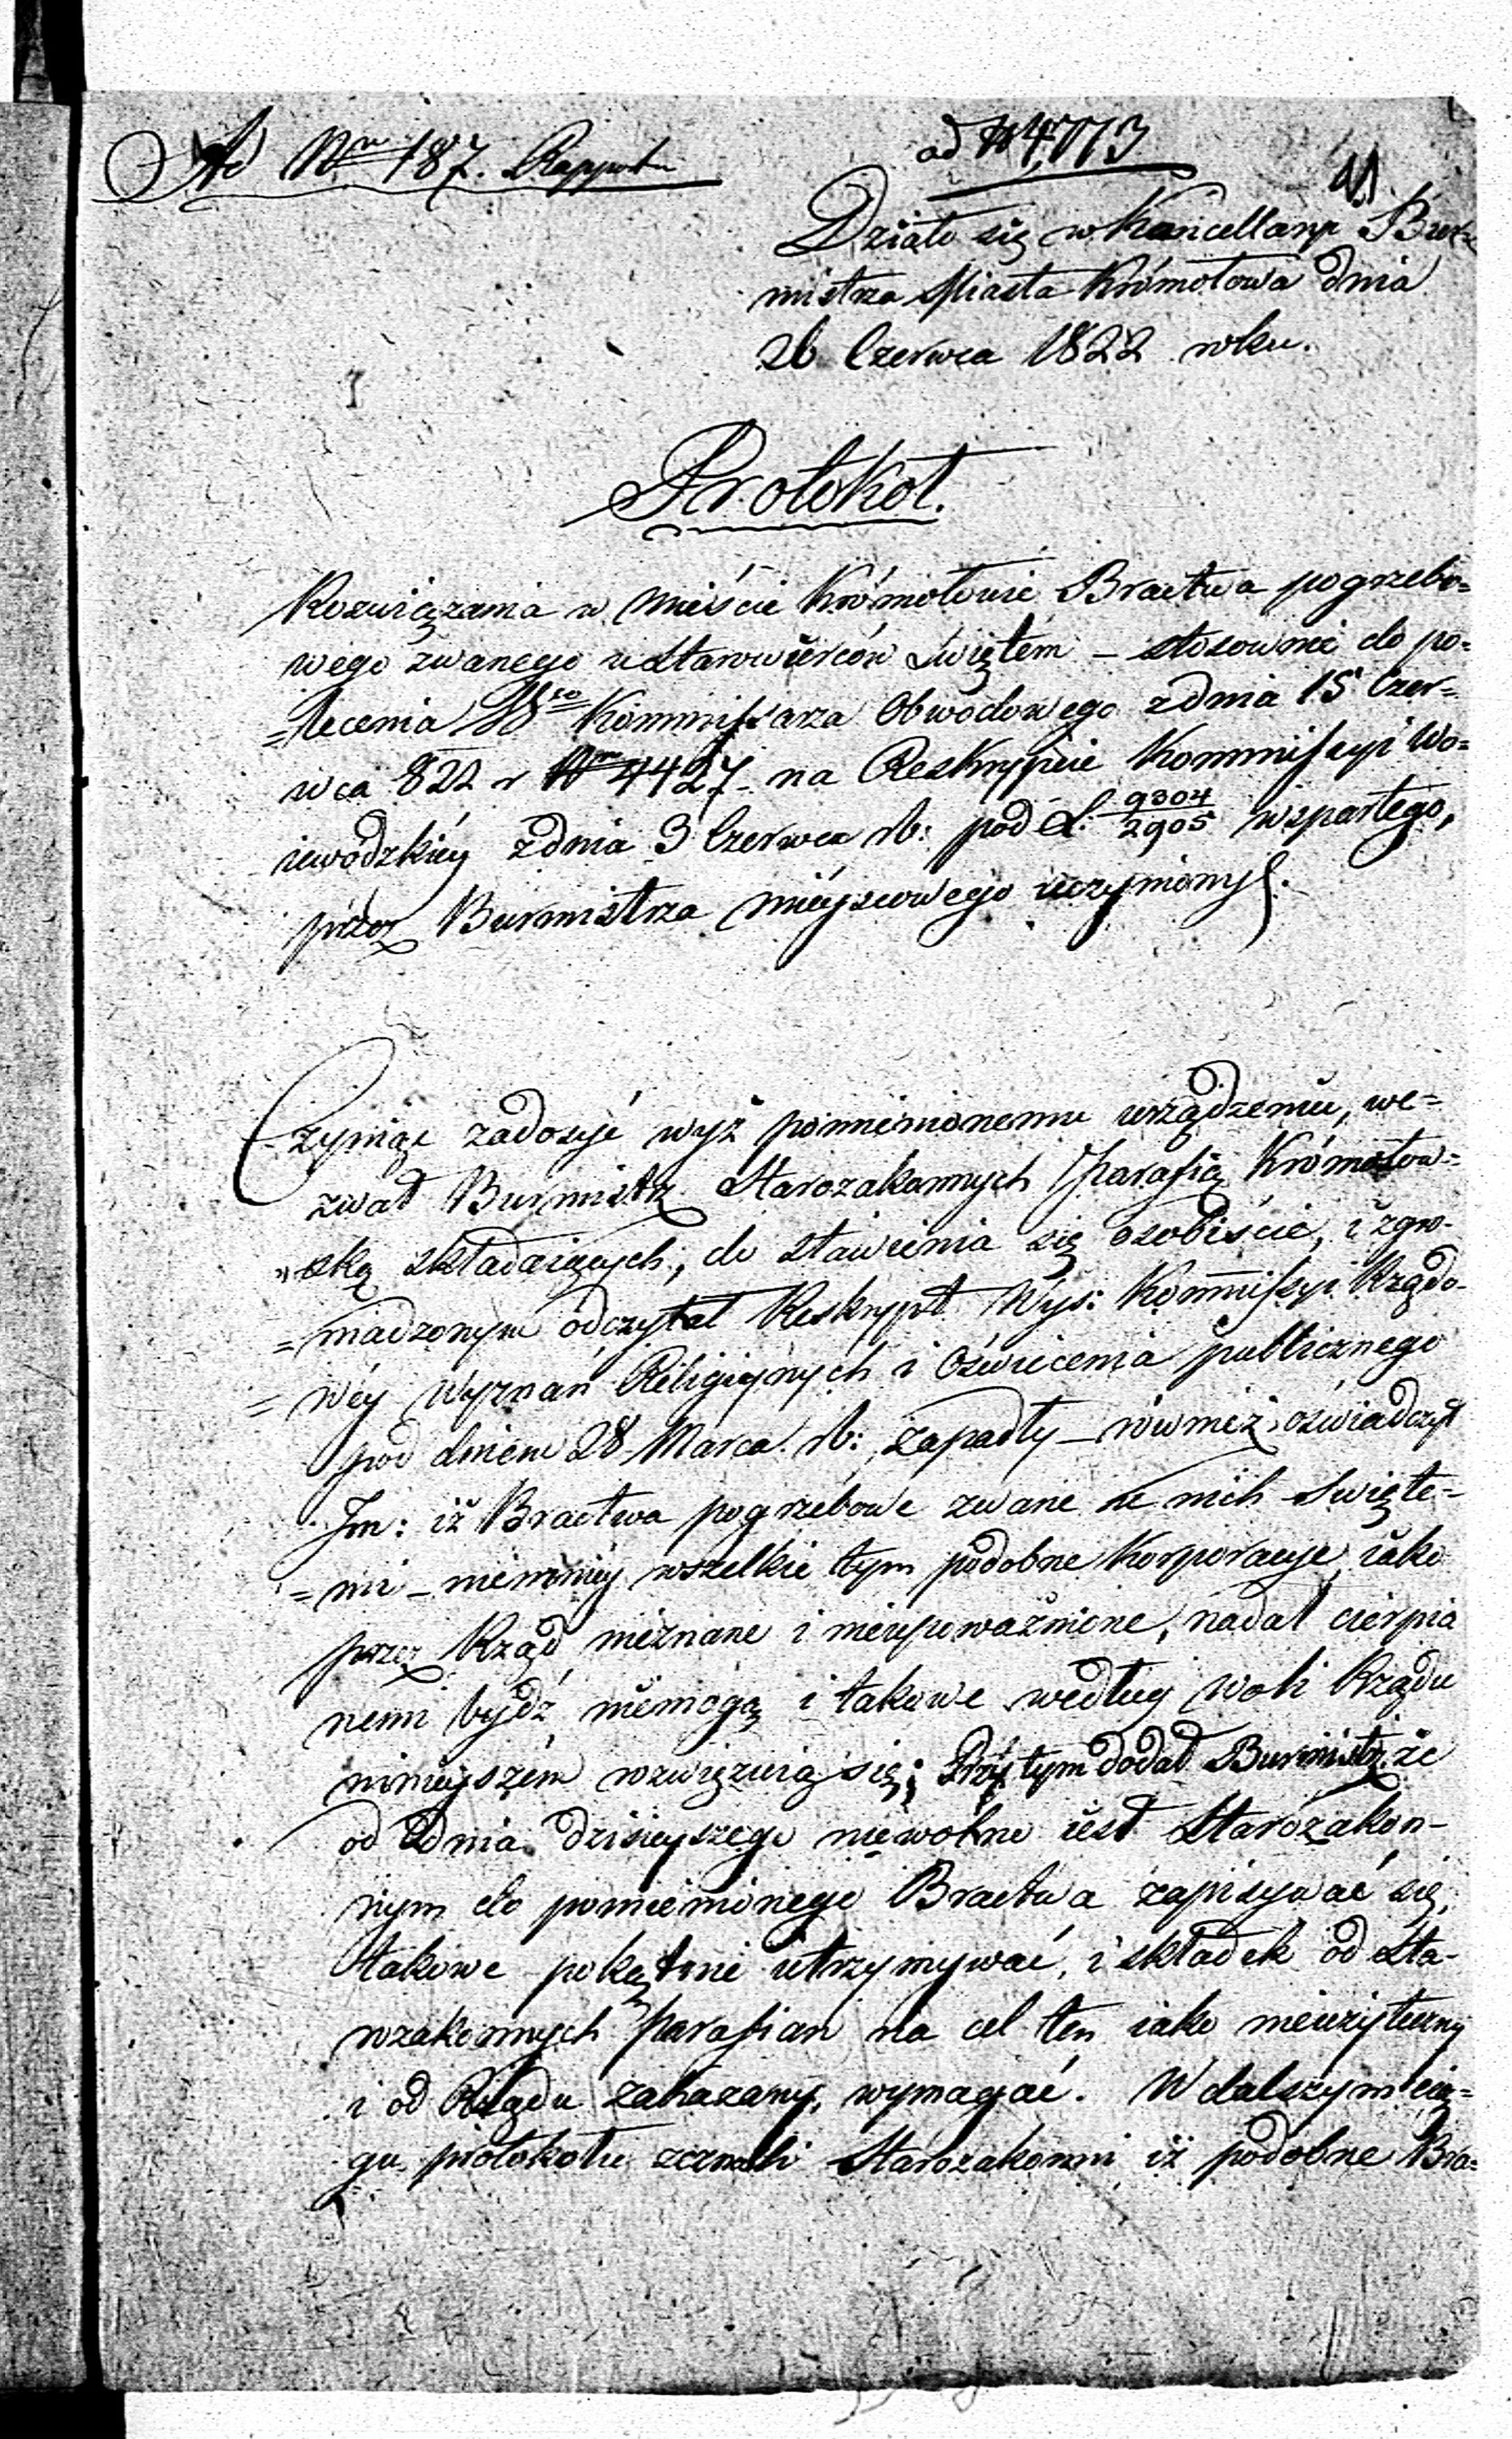 Ad Nrm 187. Rapportu
ad N 4,773
11.
Działo się w Kancellaryi Bur-
mistrza Miasta Krómołowa dnia
26 Czerwca 1822 roku.
Protokoł.
Rozwiązania w mieście Krómołowie Bractwa pogrzebo=
wego zwanego u Starowierców Świętem – stosownie do po=
=lecenia Wgo Kommissarza Obwodowego z dnia 15 Czer=
wca 822 r Nrm 4427 na Reskrypcie Kommissyi Wo=
iewódzkiéy z dnia 3 Czerwca rb: pod L: 9304/2905 wspartego,
przez Burmistrza mieyscowego uczyniony.
Czyniąc zadosyć wyż pomienionemu urządzeniu, we=
zwał Burmistrz Starozakonnych Parafią Krómołow=
ską składaiących, do stawienia się osobiście, i zgro-
=madzonym odczytał Reskrypt Wys: Kommissyi Rządo-
=wéy Wyznań Religiynych i Oświecenia publicznego
pod dniem 28 Marca rb: zapadły – również oświadczył
Im: iż Bractwa pogrzebowe zwane u nich Święte=
=mi – niemniéy wszelkie tym podobne Korporacye, iako
przez Rząd nieznane i nieupoważnione, nadal cierpia
nemi bydź niemogą i takowe według woli Rządu
ninieyszém rozwięzuią się; Przy tym dodał Burmistrz że
od dnia dzisieyszego niewolno iest Starozakon-
nym do pomienionego Bractwa zapisywać się,
takowe pokątnie utrzymywać, i składek od Sta-
rozakonnych Parafian na cel ten iako nieużyteczny
i od Rządu zakazany, wymagać. W dalszym cią=
gu protokołu zeznali Starozakonni iż podobne Bra=